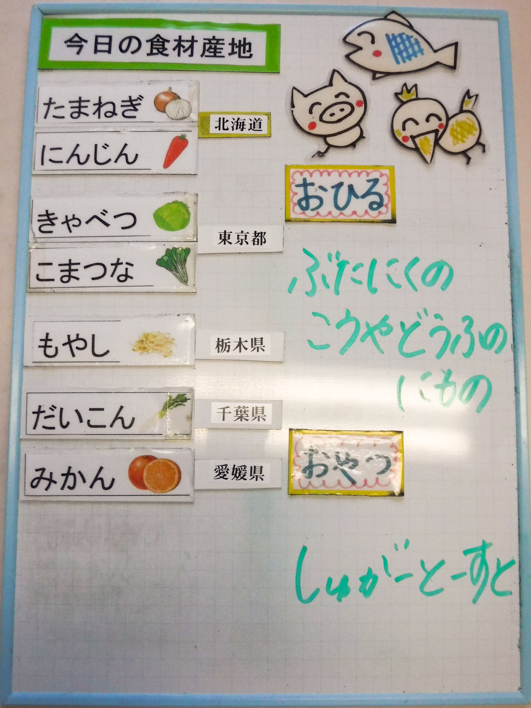 今日の食材産地
たまねぎ
北海道
にんじん
きゃべつ
東京都
こまつな
もやし
栃木県
だいこん
千葉県
みかん
愛媛県
おひる
ぶたにくの
こうやどうふの
にもの
おやつ
しゅがーとーすと